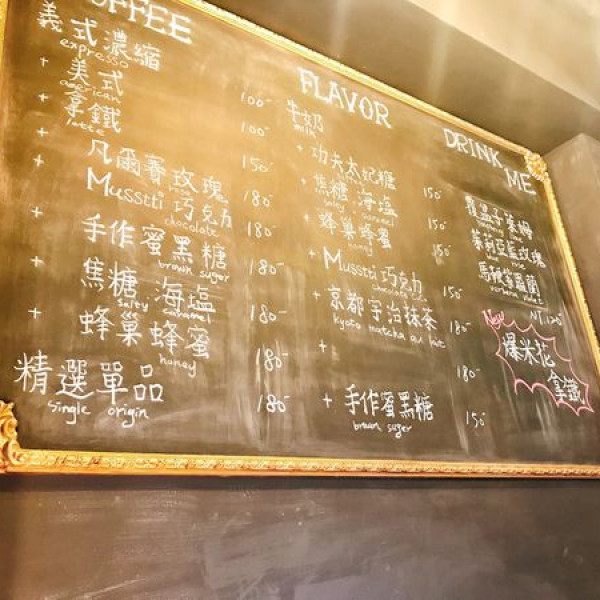 COFFEE
義式濃縮
expresso 100-
+ 美式
american 100-
+ 拿鐵
latte 150-
+ 凡爾賽玫瑰
rose 180-
Musstti 巧克力
chocolate 180-
+ 手作蜜黑糖
brown suger 180-
+ 焦糖海塩
salty caramel 180-
+ 蜂巢蜂蜜
honey 180-
精選單品
single origin 180-
FLAVOR
牛奶
milk
+ 功夫太妃糖
150-
+ 焦糖海塩
salty caramel 150-
+ 蜂巢蜂蜜
honey 150-
+ Musstti 巧克力
chocolate 150-
+ 京都宇治抹茶
kyoto matcha au lait 180-
+ 180-
+ 手作蜜黑糖
brown suger 150-
DRINK ME
覆盆子萊姆
茱莉亞藍玫瑰
馬鞭草羅蘭
NT.120
New
爆米花
拿鐵